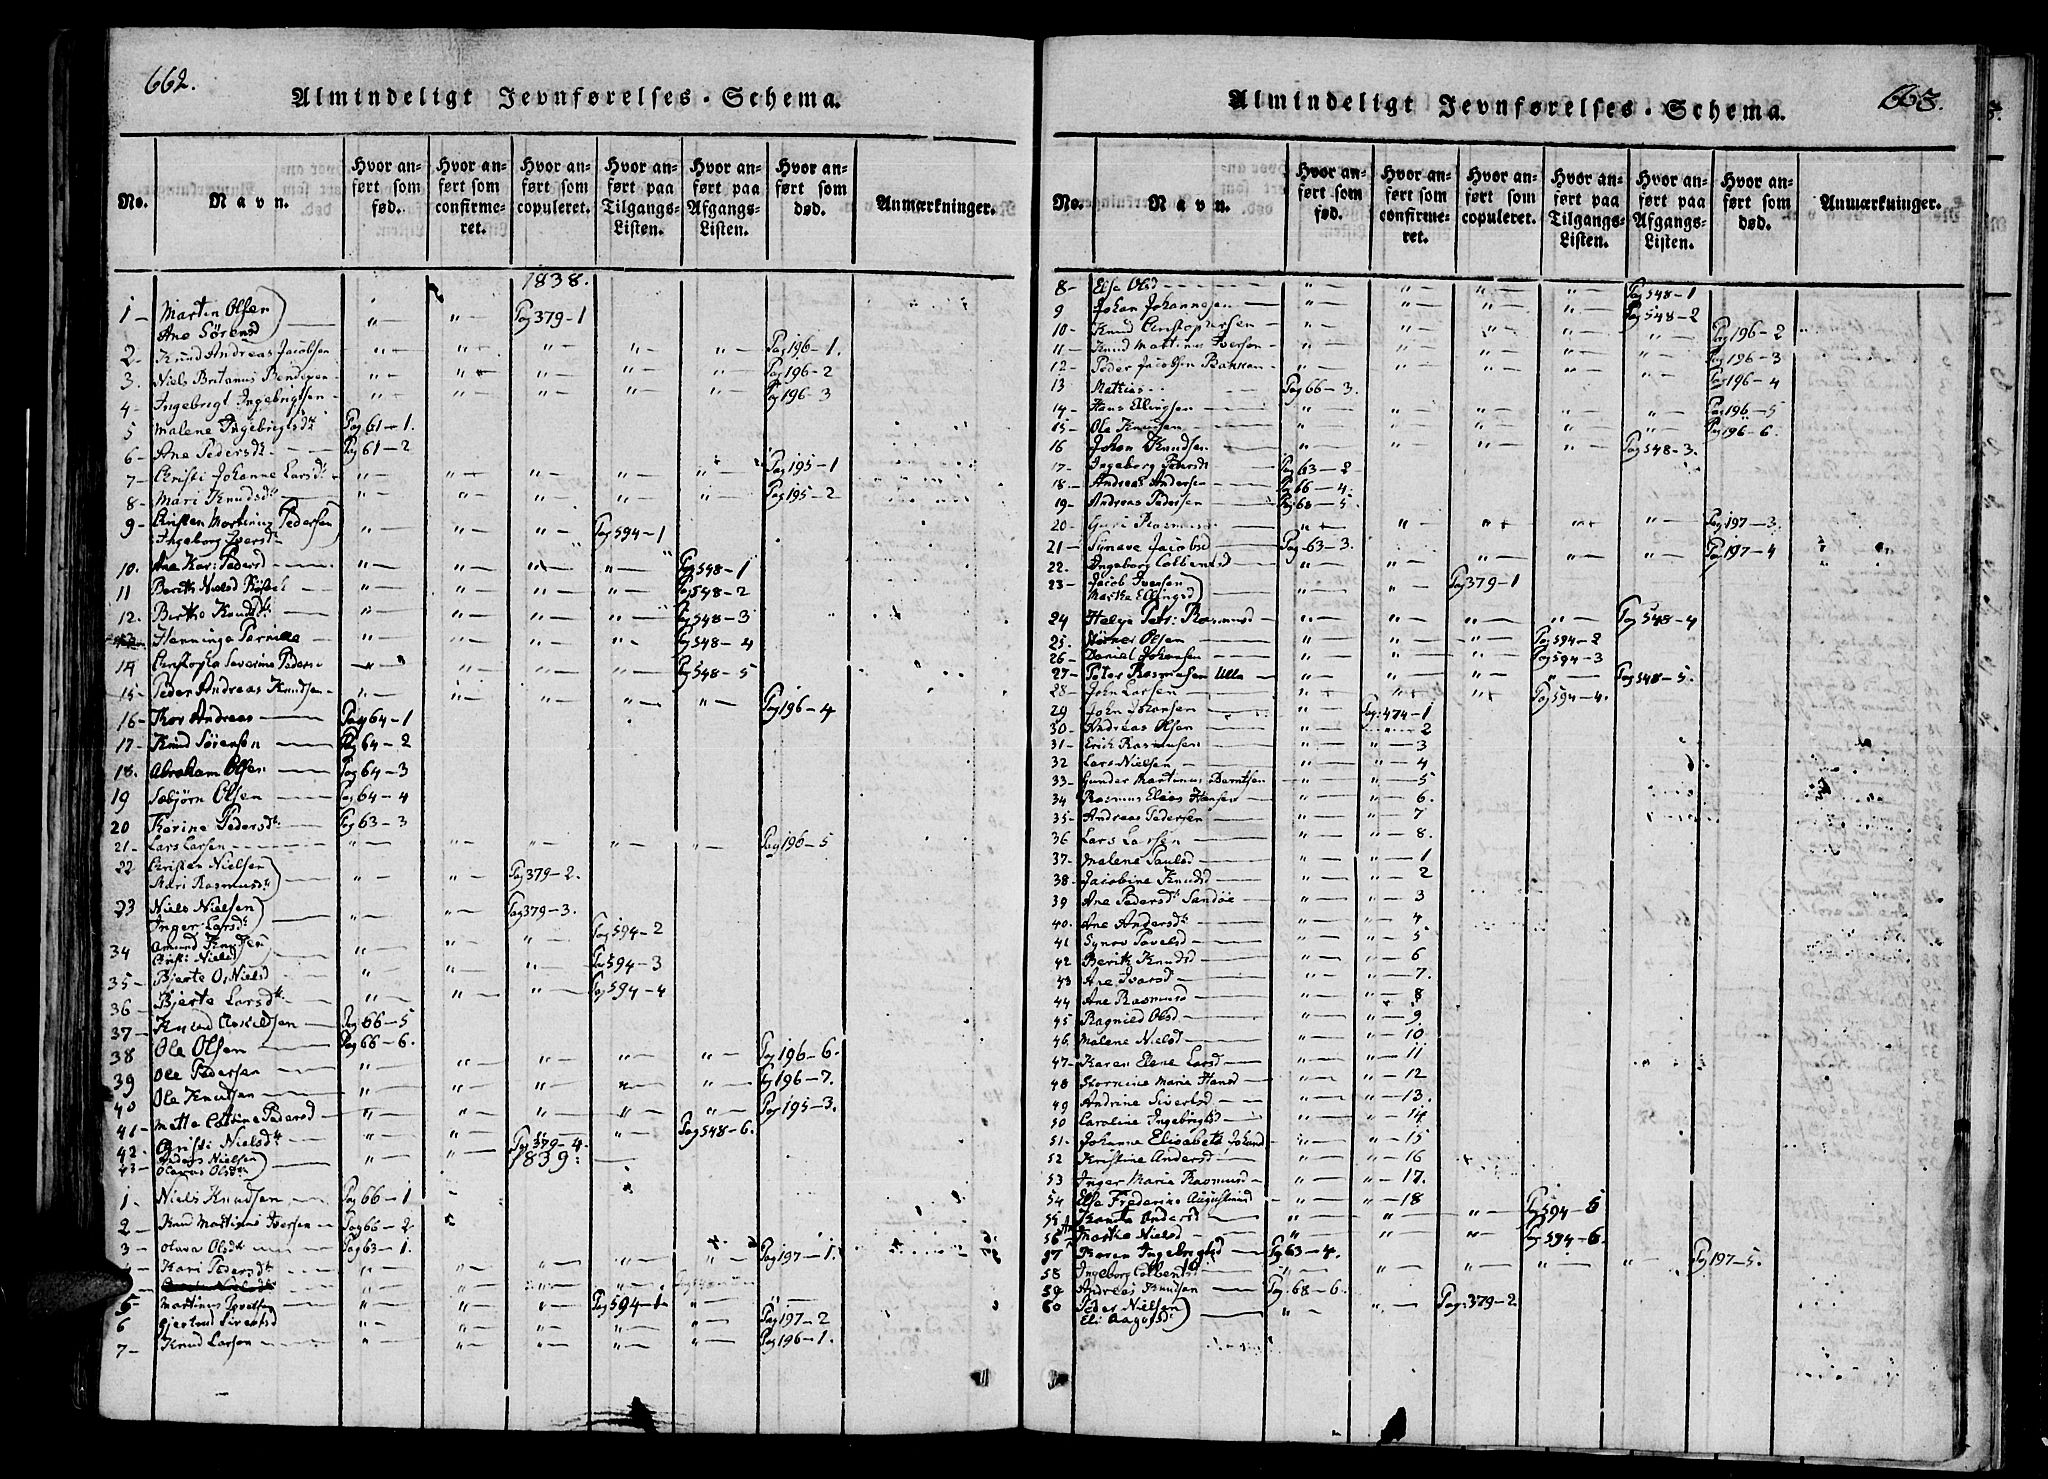 662.
Almindeligt Jevnførelses-Schema.
No.
Navn.
Hvor an-
ført som
fød.
Hvor an-
ført som
confirme-
ret.
Hvor an-
ført som
copuleret.
Hvor an-
ført paa
Tilgangs-
Listen.
Hvor an-
ført paa
Afgangs-
Listen.
Hvor an-
ført som
død.
Anmærkninger.
1838.
1 - Martin Olsen
Ane Sörensd " - " - Pag 379-1
2 - Knud Andreas Jacobsen " - " - " - " - " - Pag 196-1.
3. Niels Britanus " - " - " - " - " - Pag 196-2
4 - Ingebrigt Ingebrigtsen - " - " - " - " - " - Pag 196-3
5 Malene Ingebrigtsd Pag 61-1.
6 - Ane Pedersd - Pag 61-2
7 - Christi Johanne Larsd " - " - " - " - " - Pag 195-1
8 - Mari Knudsd " - " - " - " - " - Pag 195-2
9 - Christen Martinus Pedersen
Ingeborg Iversd " - " - " - Pag 594-1
10. Ane Kari Pedersd " - " - " - " - Pag 548-1
11 Berith Nielsd " - " - " - " - Pag 548-2
12. Bertha Knudsd " - " - " - " - Pag 548-3
Henninga Pernille " - " - " - " - Pag 548-4
14 Christopha Severine Peders " - " - " - " - Pag 548-5
15 - Peder Andreas Knudsen - " - " - " - " - " - Pag 196-4
16 - Andreas Pag 64-1
17 - Knud Sörensen Pag 64-2
18. Abraham Olsen Pag 64-3
19 Sæbjörn Olsen Pag 64-4
20 Karine Pedersd Pag 63-3
21 - Lars Larsen " - " - " - " - " - Pag 196-5
22 Christen Nielsen
Mari Rasmusd " - " - Pag 379-2.
23 Niels Nielsen
Inger Larsd " - " - Pag 379-3.
34 Amund Knudsen
Christi Nielsd " - " - " - Pag 594-2
35 - Bjerte O. Nielsd " - " - " - Pag 594-3
36 - Bjerte Larsd " - " - " - Pag 594-4
37 - Knud Pag 66-5
38 Ole Olsen Pag 66-6.
39 Ole Pedersen " - " - " - " - " - Pag 196-6.
40 Ole Knudsen " - " - " - " - " - Pag 196-7.
41 - Mette Pedersd - " - " - " - " - " - Pag 195-3.
42 - Christi Nielsd " - " - " - " - Pag 548-6.
43 - Anders Nielsen
Olava Olsd " - " - Pag 379-4.
1839.
1 - Niels Knudsen Pag 66-1
2 - Knud Martinus Iversen Pag 66-2
3 - Olava Olsd Pag 63-1.
4 - Kari Pedersd " - " - " - " - " - Pag 197-1.
5 - Martinus " - " - " - Pag 594-1 "
6 Gjertrud Sivertsd " - " - " - " - " - Pag 197-2
7 - Knud Larsen " - " - " - " - " - Pag 196-1.
663.
Almindeligt Jevnførelses-Schema.
No.
Navn.
Hvor an-
ført som
fød.
Hvor an-
ført som
confirme-
ret.
Hvor an-
ført som
copuleret.
Hvor an-
ført paa
Tilgangs-
Listen.
Hvor an-
ført paa
Afgangs-
Listen.
Hvor an-
ført som
død.
Anmærkninger.
8 - Else Olsd " - " - " - " - Pag 548-1
9 Johan Johannesen " - " - " - " - Pag 548-2
10 - Knud Christophersen " - " - " - " - " - Pag 196-2
11 - Knud Mattinus Iversen " - " - " - " - " - Pag 196-3
12 - Peder Jacobsen " - " - " - " - " - Pag 196-4
13 Mattias Pag 66-3.
14 - Hans Ellingsen " - " - " - " - " - Pag 196-5
15 - Ole Knudsen " - " - " - " - " - Pag 196-6.
16 Johan Knudsen " - " - " - " - Pag 548-3.
17 - Ingeborg Pedersd Pag 63-2
18 - Andreas Andersen Pag 66-4.
19 - Andreas Pedersen Pag 68-5.
20 - Guri Rasmusd " - " - " - " - " - Pag 197-3.
21 - Synave Jacobsd Pag 63-3.
22. Ingeborg Colbensd " - " - " - " - " - Pag 197-4
23 - Jacob Iversen
Marta Ellingsd " - " - Pag 379-1
24 Helge Petr. Rasmusd " - " - " - " - Pag 548-4
25. Olsen " - " - " - Pag 594-2
26 - Daniel Johansen " - " - " - Pag 594-3
27 - Peter Rasmusen Ulla " - " - " - " - Pag 548-5.
28 - John Larsen " - " - " - Pag 594-4.
29 John Johansen " - Pag. 474-1
30 - Andreas Olsen " - " - 2
31 - Erich Rasmusen " - " - 3
32 Lars Nielsen " - " - 4
33 - Gunder Martinus Berntsen " - " - 5
34 Rasmus Elias Hansen " - " - 6.
35 - Andreas Pedersen " - " - 7
36 Lars Larsen " - " - 8.
37 - Malene Paulsd " - " - 1
38 - Jacobine Knudsd " - " - 2
39 Ane Pedersd Sandöe " - " - 3
40. Ane Andersd " - " - 4
41 Synov Povelsd " - " - 5
42 Berith Knudsd " - " - 6
43 Ane Ivarsd " - " - 7.
44 Ane Rasmusd " - " - 8
45 Ragnild Olsd " - " - 9
46. Malene Nielsd " - " - 10.
47 - Karen Elene Larsd " - " - 11
48 Stornine Marie Hansd " - " - 12
49 Andrine Sivertsd " - " - 13.
50 Caroline Ingebrigtsd " - " - 14
51 - Johanne Elisabeth Johansd " - " - 15
52 Kristine Andersd " - " - 16
53 Inger Maria Rasmusd " - " - 17.
54 Else Frederica Augustinusd " - " - 18
55 Andersd " - " - " - Pag 594-5
56 Martha Nielsd " - " - " - Pag 594-6.
57 Karen Ingebrigtsd Pag 63-4.
58 Ingeborg Colbensd " - " - " - " - " - Pag 197-5.
59 Andreas Knudsen Pag. 68-6.
60 Peder Nielsen
Eli Aagesd " - " - Pag. 379-2.